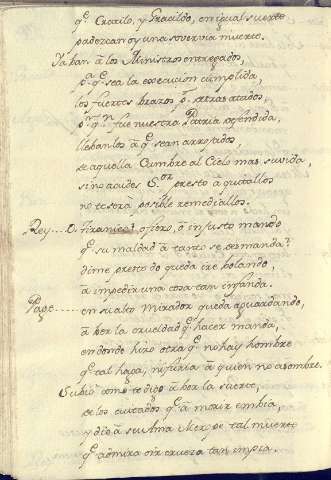 qe. Cratilo, y Gracildo, en igual suerte
padezcan oy una sovervia muerte.
Ya ban â los Ministros entregados,
pa. qe. sea la execucion cumplida,
los fuertes brazos pr. atras atados,
pr. qn. fue nuestra Patria ofendida,
llebanlos â qe. sean arrojados,
de aquella Cumbre al Cielo mas suvida,
sino acudes Sor. presto â quitallos
no te serâ posible remediallos.
Rey... O Tiranico, ô fiero, ô injusto mando
qe. su maldad â tanto se desmanda?
dime presto do queda ire bolando,
â impedir una cosa tan infanda.
Page... en su alto mirador queda aguardando,
â ber la crueldad qe. hacer manda,
en donde hizo otra qe. no hay hombre
qe. tal haga, ni furia â quien no asombre.
Subiô como te digo â ber la suerte,
de los cuitados qe. â morir embia,
y diô â su Alma Uker de tal muerte
qe. admira oir crueza tan impia.